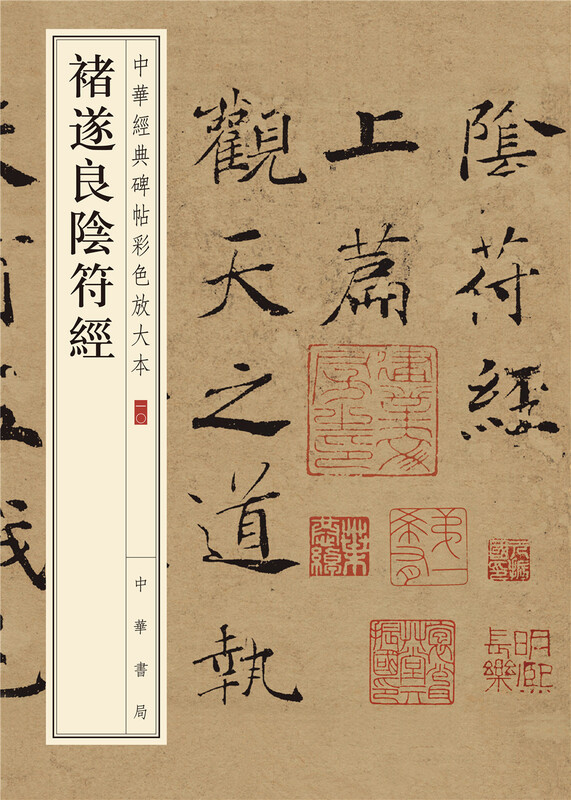 陰符經
上篇
觀天之道執
中華經典碑帖彩色放大本
一〇
中華書局
褚遂良陰符經
建業文
房之印